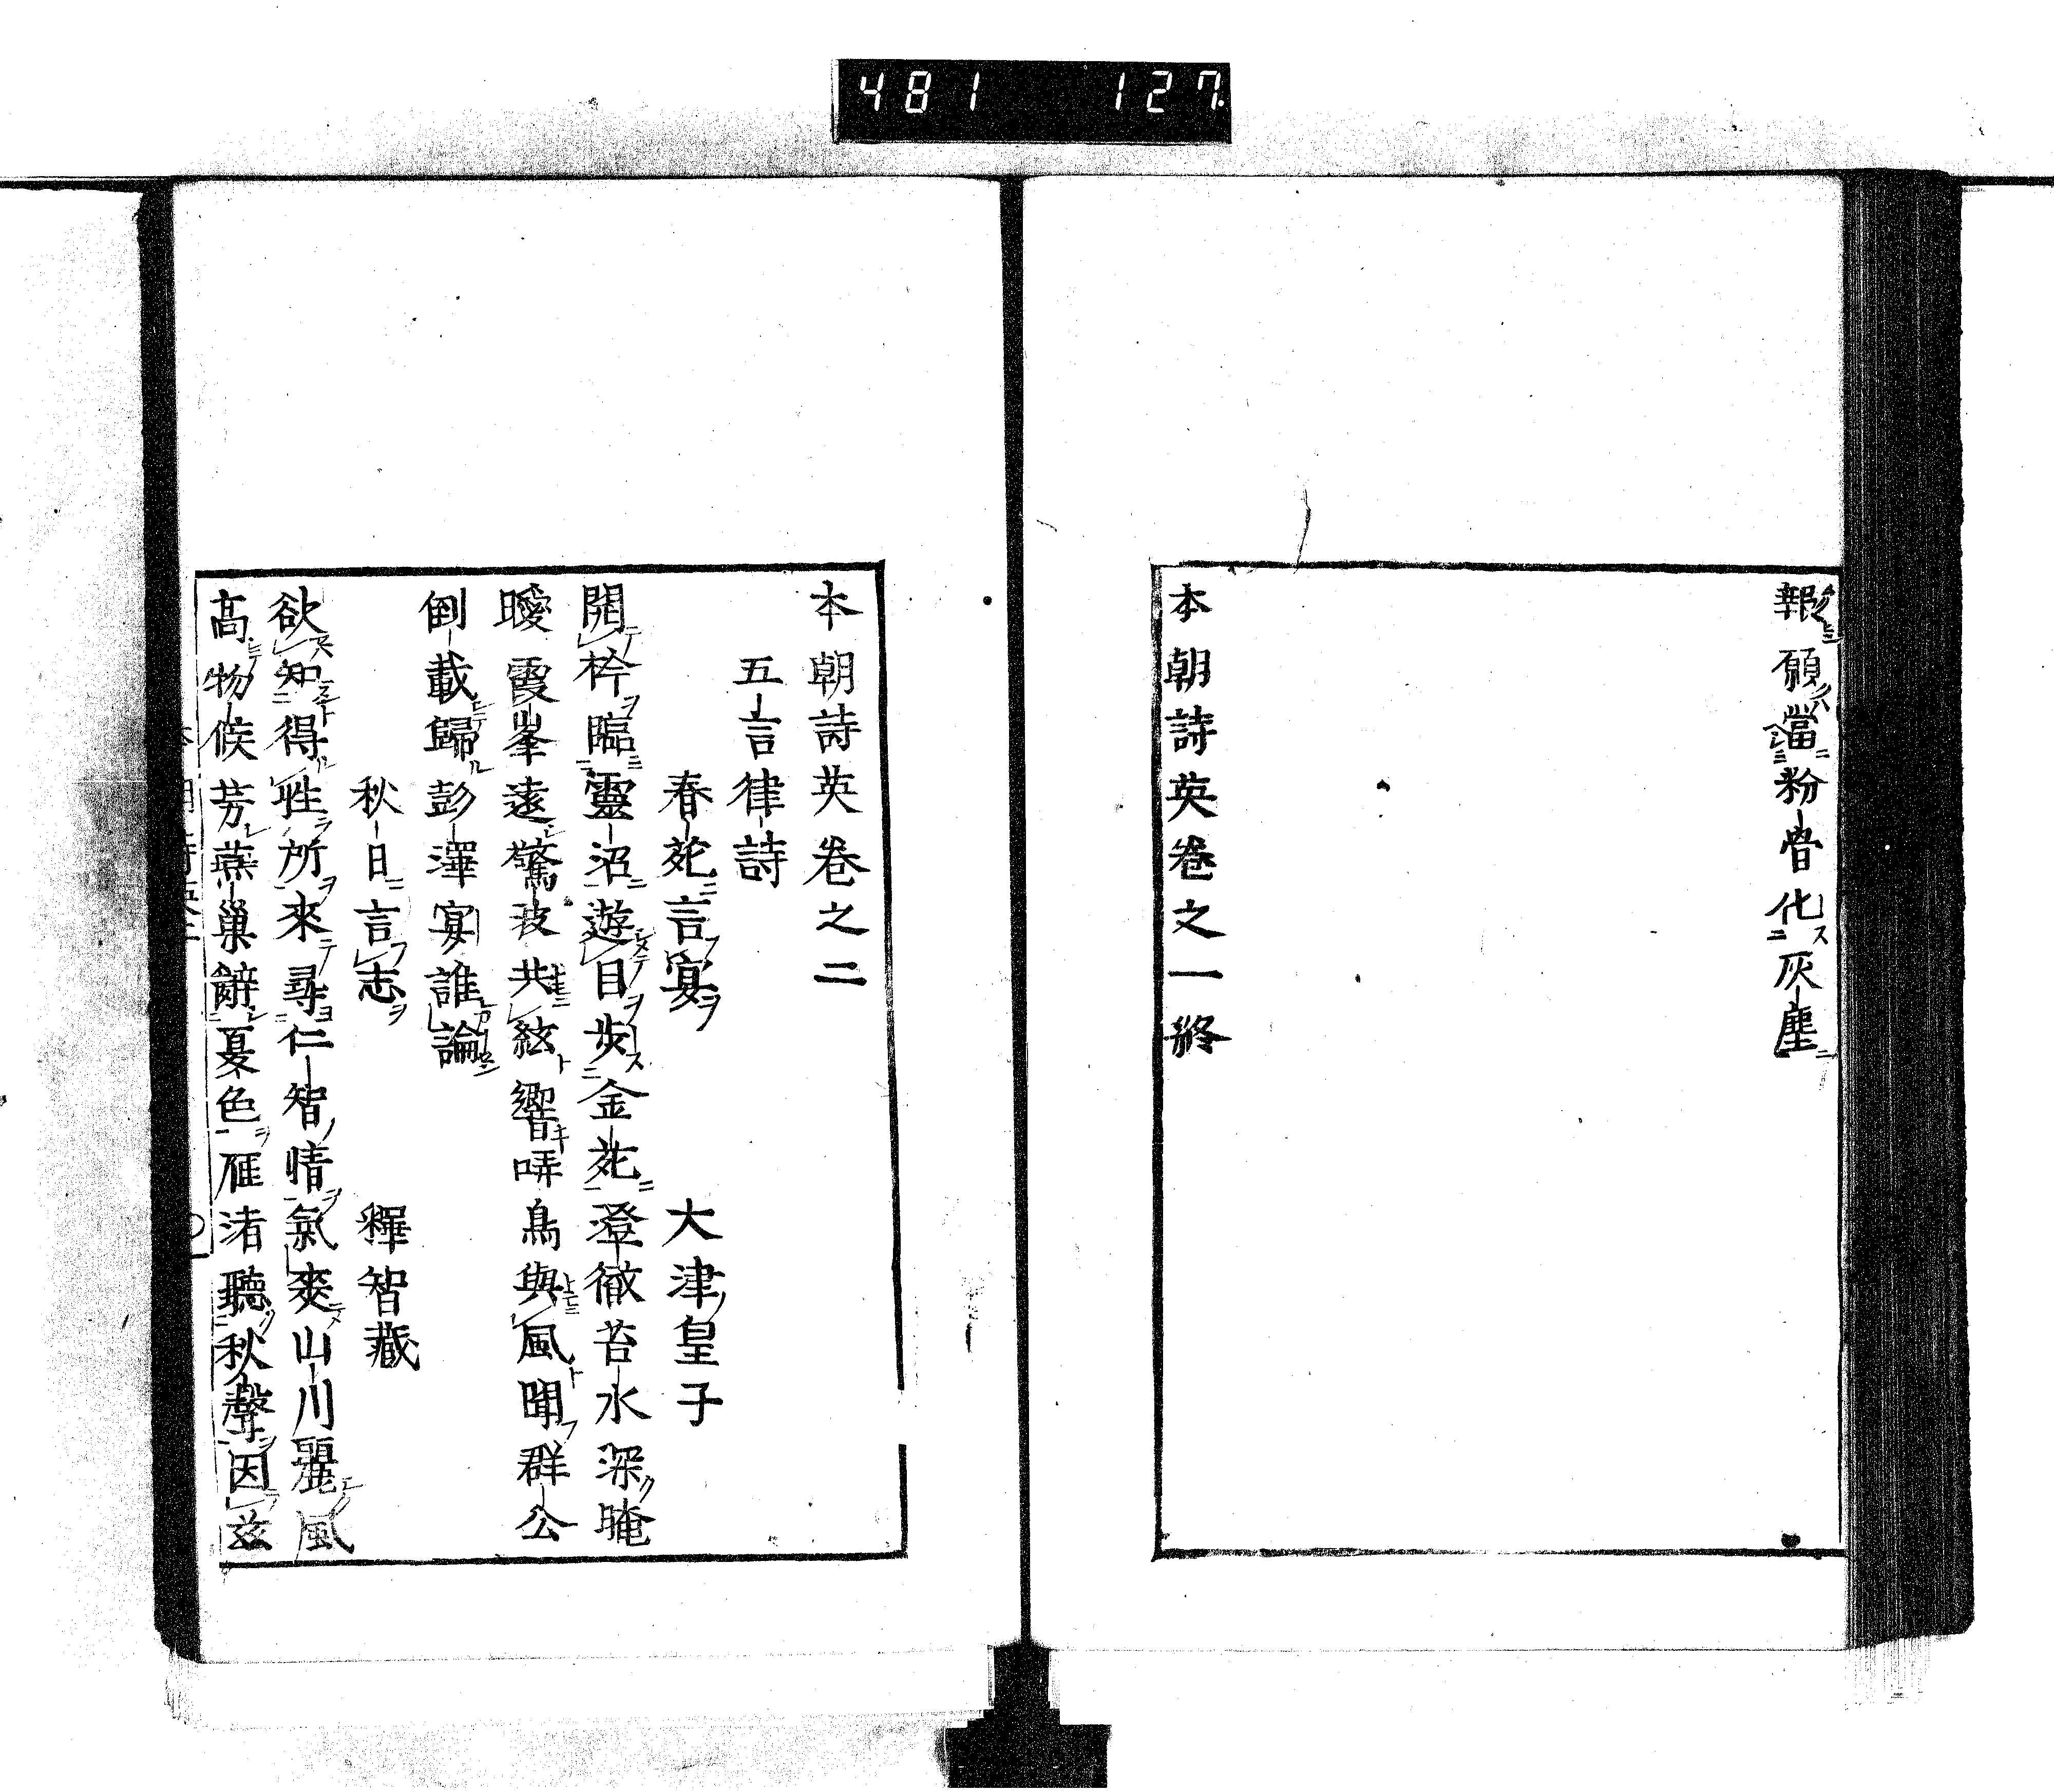 481 127
報願當粉骨化灰塵
本朝詩英卷之一終
本朝詩英卷之二
五言律詩
春苑言宴 大津皇子
開衿臨靈沼遊目步金苑澄徹苔水深晻
曖霞峯遠驚波共絃響哢鳥與風聞群公
倒載歸彭澤宴誰論
秋日言志 釋智藏
欲知得性所來尋仁智情氣爽山川麗風
高物候芳燕巢辭夏色雁渚聽秋聲因茲